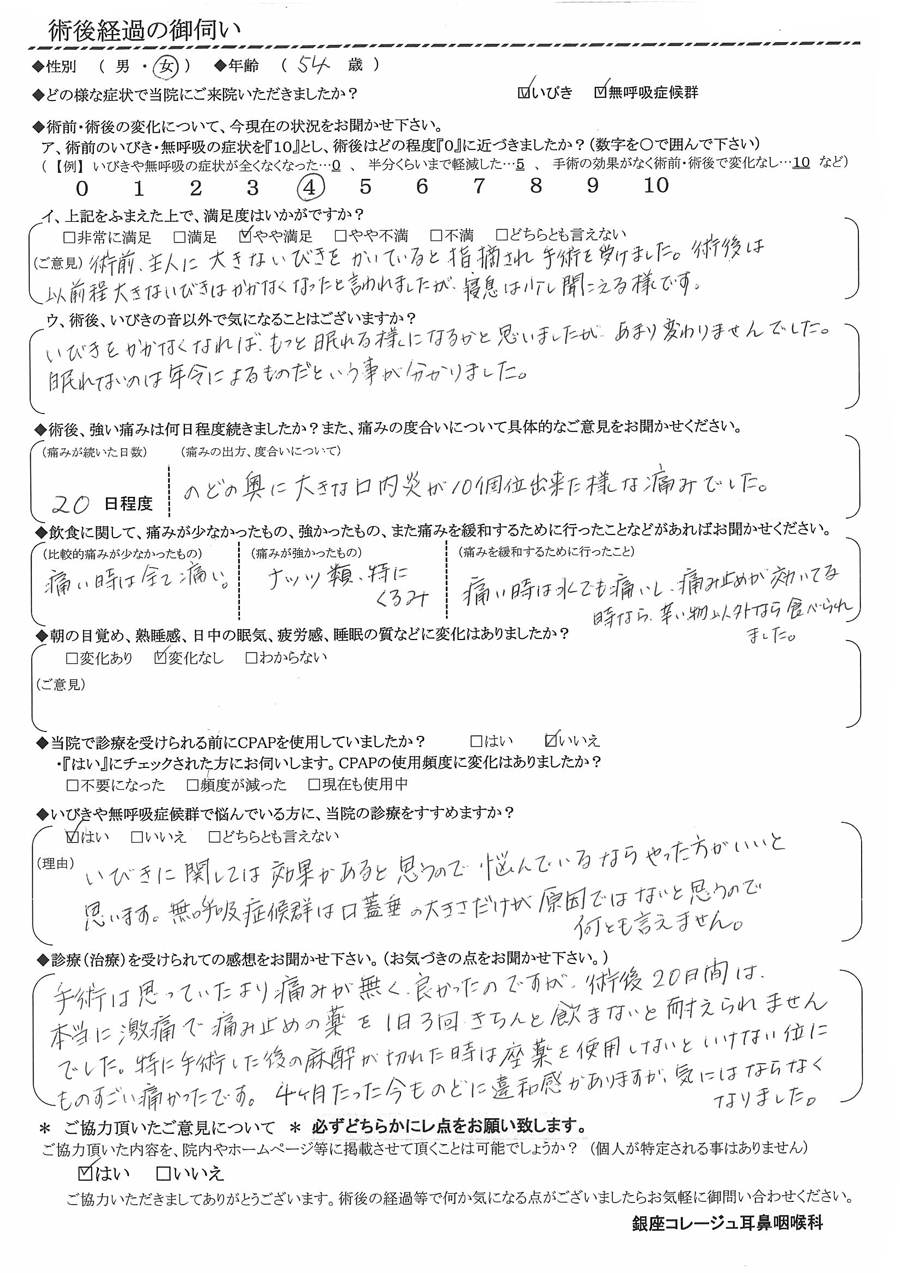 術後経過の御伺い
◆性別 （ 男 ・ 女 ） ◆年齢 （ 54 歳 ）
◆どの様な症状で当院にご来院いただきましたか？ ☑いびき ☑無呼吸症候群
◆術前・術後の変化について、今現在の状況をお聞かせ下さい。
ア、術前のいびき・無呼吸の症状を『10』とし、術後はどの程度『0』に近づきましたか？（数字を〇で囲んで下さい）
（【例】いびきや無呼吸の症状が全くなくなった…0 、 半分くらいまで軽減した…5 、 手術の効果がなく術前・術後で変化なし…10 など）
0 1 2 3 4 5 6 7 8 9 10
イ、上記をふまえた上で、満足度はいかがですか？
□非常に満足 □満足 ☑やや満足 □やや不満 □不満 □どちらとも言えない
（ご意見） 術前、主人に大きないびきをかいていると指摘され手術を受けました。術後は
以前程大きないびきはかかなくなったと言われましたが、寝息は少し聞こえる様です。
ウ、術後、いびきの音以外で気になることはございますか？
いびきをかかなくなれば、もっと眠れる様になるかと思いましたが、あまり変わりませんでした。
眠れないのは年令によるものだという事が分かりました。
◆術後、強い痛みは何日程度続きましたか？また、痛みの度合いについて具体的なご意見をお聞かせください。
（痛みが続いた日数） （痛みの出方、度合いについて）
20 日程度 のどの奥に大きな口内炎が10個位出来た様な痛みでした。
◆飲食に関して、痛みが少なかったもの、強かったもの、また痛みを緩和するために行ったことなどがあればお聞かせください。
（比較的痛みが少なかったもの） （痛みが強かったもの） （痛みを緩和するために行ったこと）
痛い時は全て痛い。 ナッツ類、特に
くるみ
痛い時は水でも痛いし、痛み止めが効いてる
時なら、辛い物以外なら食べられ
ました。
◆朝の目覚め、熟睡感、日中の眠気、疲労感、睡眠の質などに変化はありましたか？
□変化あり ☑変化なし □わからない
（ご意見）
◆当院で診療を受けられる前にCPAPを使用していましたか？ □はい ☑いいえ
・『はい』にチェックされた方にお伺いします。CPAPの使用頻度に変化はありましたか？
□不要になった □頻度が減った □現在も使用中
◆いびきや無呼吸症候群で悩んでいる方に、当院の診療をすすめますか？
☑はい □いいえ □どちらとも言えない
（理由） いびきに関しては効果があると思うので悩んでいるならやった方がいいと
思います。無呼吸症候群は口蓋垂の大きさだけが原因ではないと思うので
何とも言えません。
◆診療（治療）を受けられての感想をお聞かせ下さい。（お気づきの点をお聞かせ下さい。）
手術は思っていたより痛みが無く、良かったのですが、術後20日間は、
本当に激痛で痛み止めの薬を1日3回きちんと飲まないと耐えられません
でした。特に手術した後の麻酔が切れた時は座薬を使用しないといけない位に
ものすごい痛かったです。4ヶ月たった今ものどに違和感がありますが、気にはならなく
なりました。
＊ ご協力頂いたご意見について ＊ 必ずどちらかにレ点をお願い致します。
ご協力頂いた内容を、院内やホームページ等に掲載させて頂くことは可能でしょうか？（個人が特定される事はありません）
☑はい □いいえ
ご協力いただきましてありがとうございます。術後の経過等で何か気になる点がございましたらお気軽に御問い合わせください。
銀座コレージュ耳鼻咽喉科